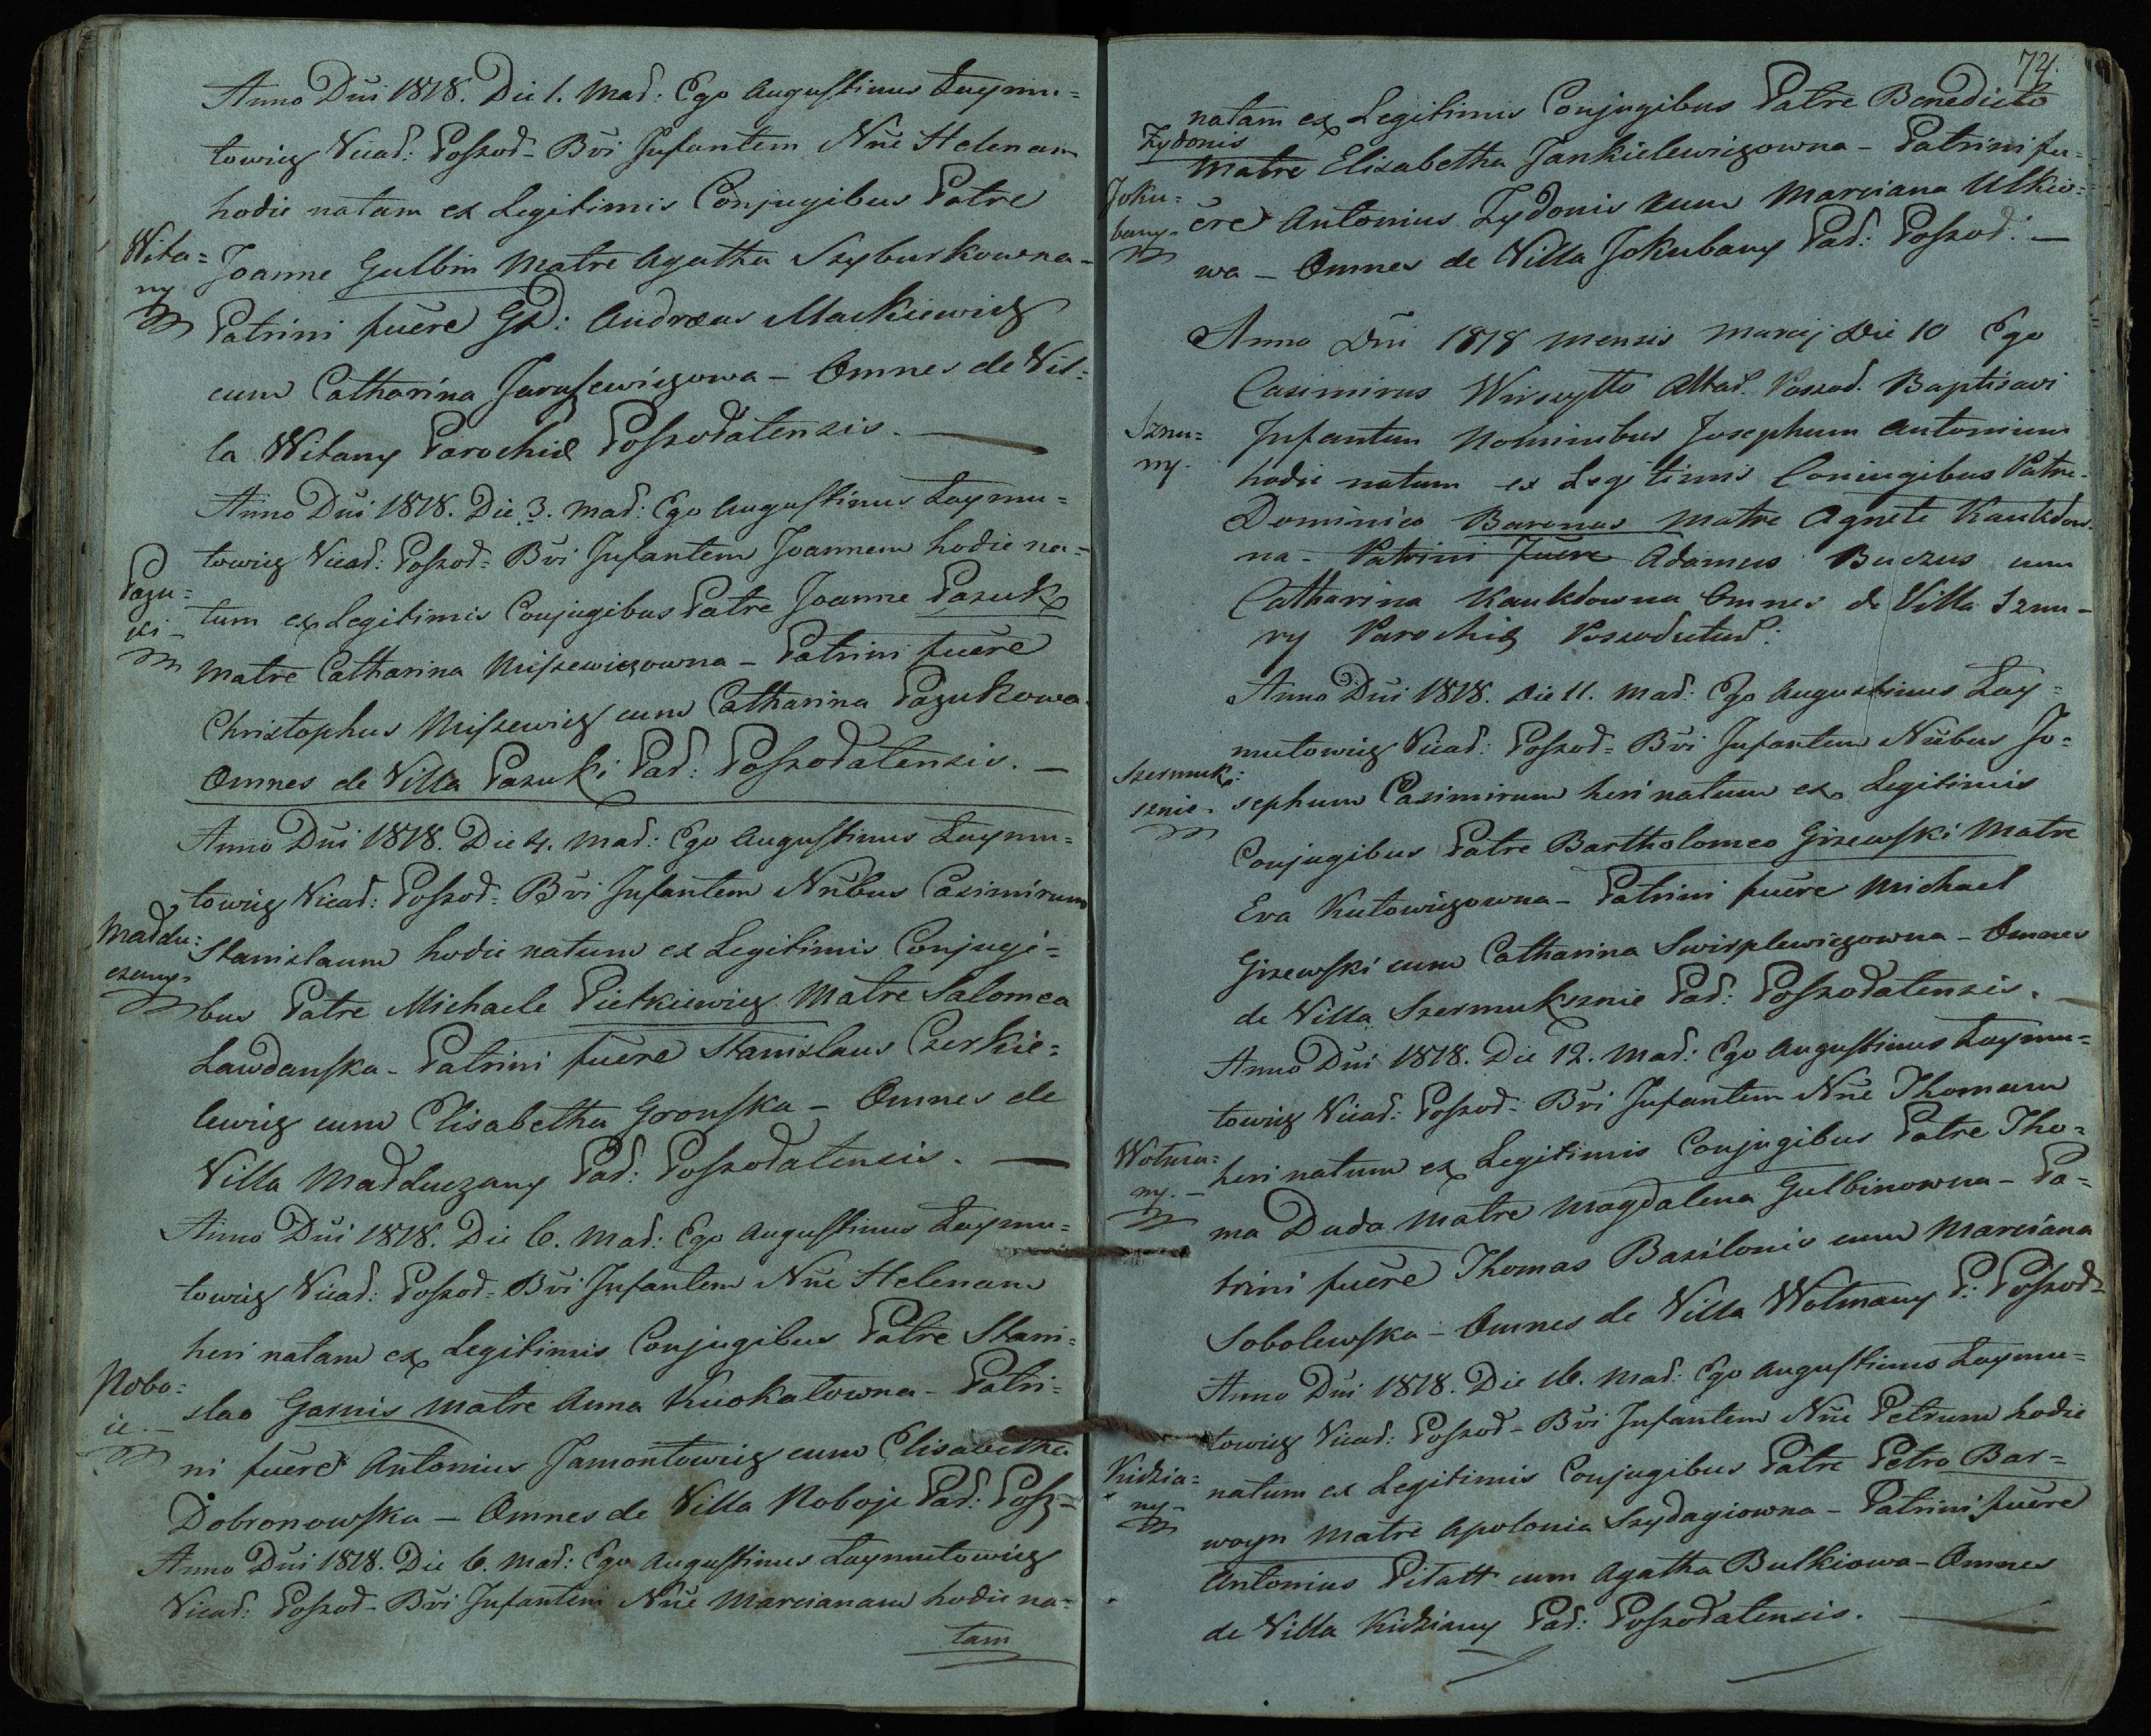 Anno Dni 1818. Die 1. Mad: Ego Augustinus Laymu=
towicz Vicad: Poszod= Bvi Infantem Nne Helenam
hodie natam ex Legitimis Conjugibus Patre
Wita=
ny
Joanne Gulbin Matre Agatha Szyburkowna -
Patrini fuere GD: Andreas Mackiewicz
cum Catharina Jaruszewiczowa - Omnes de Vil=
la Witany Parochiæ Poszodatensis. —
Anno Dni 1818. Die 3. Mad: Ego Augustinus Laymu=
towicz Vicad: Poszod= Bvi Infantem Joannem hodie na=
Pazu=
ki -
tum ex Legitimis Conjugibus Patre Joanne Pazuk
Matre Catharina Miszewiczowna - Patrini fuere
Christophus Miszewicz cum Catharina Pazukowa.
Omnes de Villa Pazuki Pad: Poszodatensis. —
Anno Dni 1818. Die 4. Mad: Ego Augustinus Laymu=
towicz Vicad: Poszod= Bvi Infantem Nnbus Casimirum
Maddu=
czany.
Stanislaum hodie natum ex Legitimis Conjugi=
bus Patre Michaele Pietkiewicz Matre Salomea
Lawdanska - Patrini fuere Stanislaus Czerkie=
lewicz cum Elisabetha Gronska - Omnes de
Villa Madduczany Pad: Poszodatensis. —
Anno Dni 1818. Die 6. Mad: Ego Augustinus Laymu=
towicz Vicad: Poszod= Bvi Infantem Nne Helenam
heri natam ex Legitimis Conjugibus Patre Stani=
Nobo=
ie. -
slao Gamis Matre Anna Kuokatowna - Patri=
ni fuere Antonius Jamontowicz cum Elisabetha
Dobronowska — Omnes de Villa Noboje Pad: Posz=
Anno Dni 1818. Die 6. Mad: Ego Augustinus Laymutowicz
Vicad: Poszod= Bvi Infantem Nne Marcianam hodie na=
tam
74.
natam ex Legitimis Conjugibus Patre Benedicto
Zydonis
Matre Elisabetha Jankielewiczowna - Patrini fu=
Joku=
bany.
ere Antonius Zydonis cum Marciana Utkio=
wa - Omnes de Villa Jokubany Pad: Poszod. —
Anno Dni 1818 Mensis Marcij Die 10 Ego
Casimirus Wirszytto Altad. Poszod. Baptisavi
Sznu=
ry.
Infantem Nominibus Josephum Antonium
hodie natum ex Legitimis Coniugibus Patre
Dominico Baronas Matre Agnete Kaukdow=
na - Patrini fuere Adamus Buczus cum
Catharina Kaukdowna Omnes de Villa Sznu-
ry Parochiæ Poszodutad:
Anno Dni 1818. Die 11. Mad: Ego Augustinus Lay=
mutowicz Vicad: Poszod= Bvi Infantem Nnbus Jo=
Szermuk:
sznie.
sephum Casimirum heri natum ex Legitimis
Conjugibus Patre Bartholomeo Gizewski Matre
Eva Kutowiczowna - Patrini fuere Michael
Gizewski cum Catharina Swirplewiczowna - Omnes
de Villa Szermuksznie Pad: Poszodatensis. —
Anno Dni 1818. Die 12. Mad: Ego Augustinus Laymu=
towicz Vicad: Poszod= Bvi Infantem Nne Thomam
Wotma=
ny. -
heri natum ex Legitimis Conjugibus Patre Tho=
ma Duda Matre Magdalena Gulbinowna - Pa=
trini fuere Thomas Bazilonis cum Marciana
Sobolewska - Omnes de Villa Wotmany P: Poszod=
Anno Dni 1818. Die 16. Mad: Ego Augustinus Laymu=
towicz Vicad: Poszod= Bvi Infantem Nne Petrum hodie
Kidzia=
ny -
natum ex Legitimis Conjugibus Patre Petro Bar=
woyn Matre Apolonia Szydagiowna - Patrini fuere
Antonius Pitatt cum Agatha Butkiowa - Omnes
de Villa Kidziany Pad: Poszodatensis. —